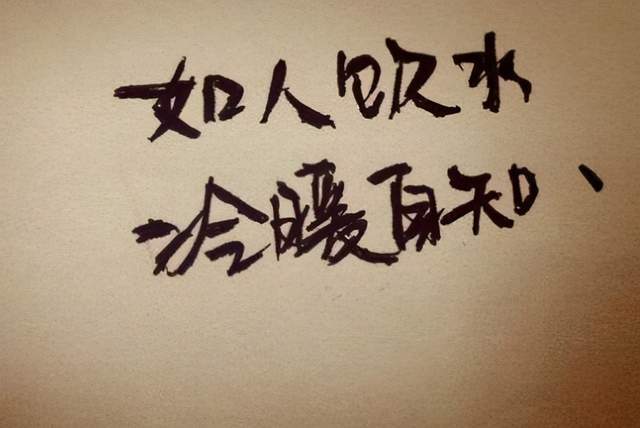 如人饮水
冷暖自知、